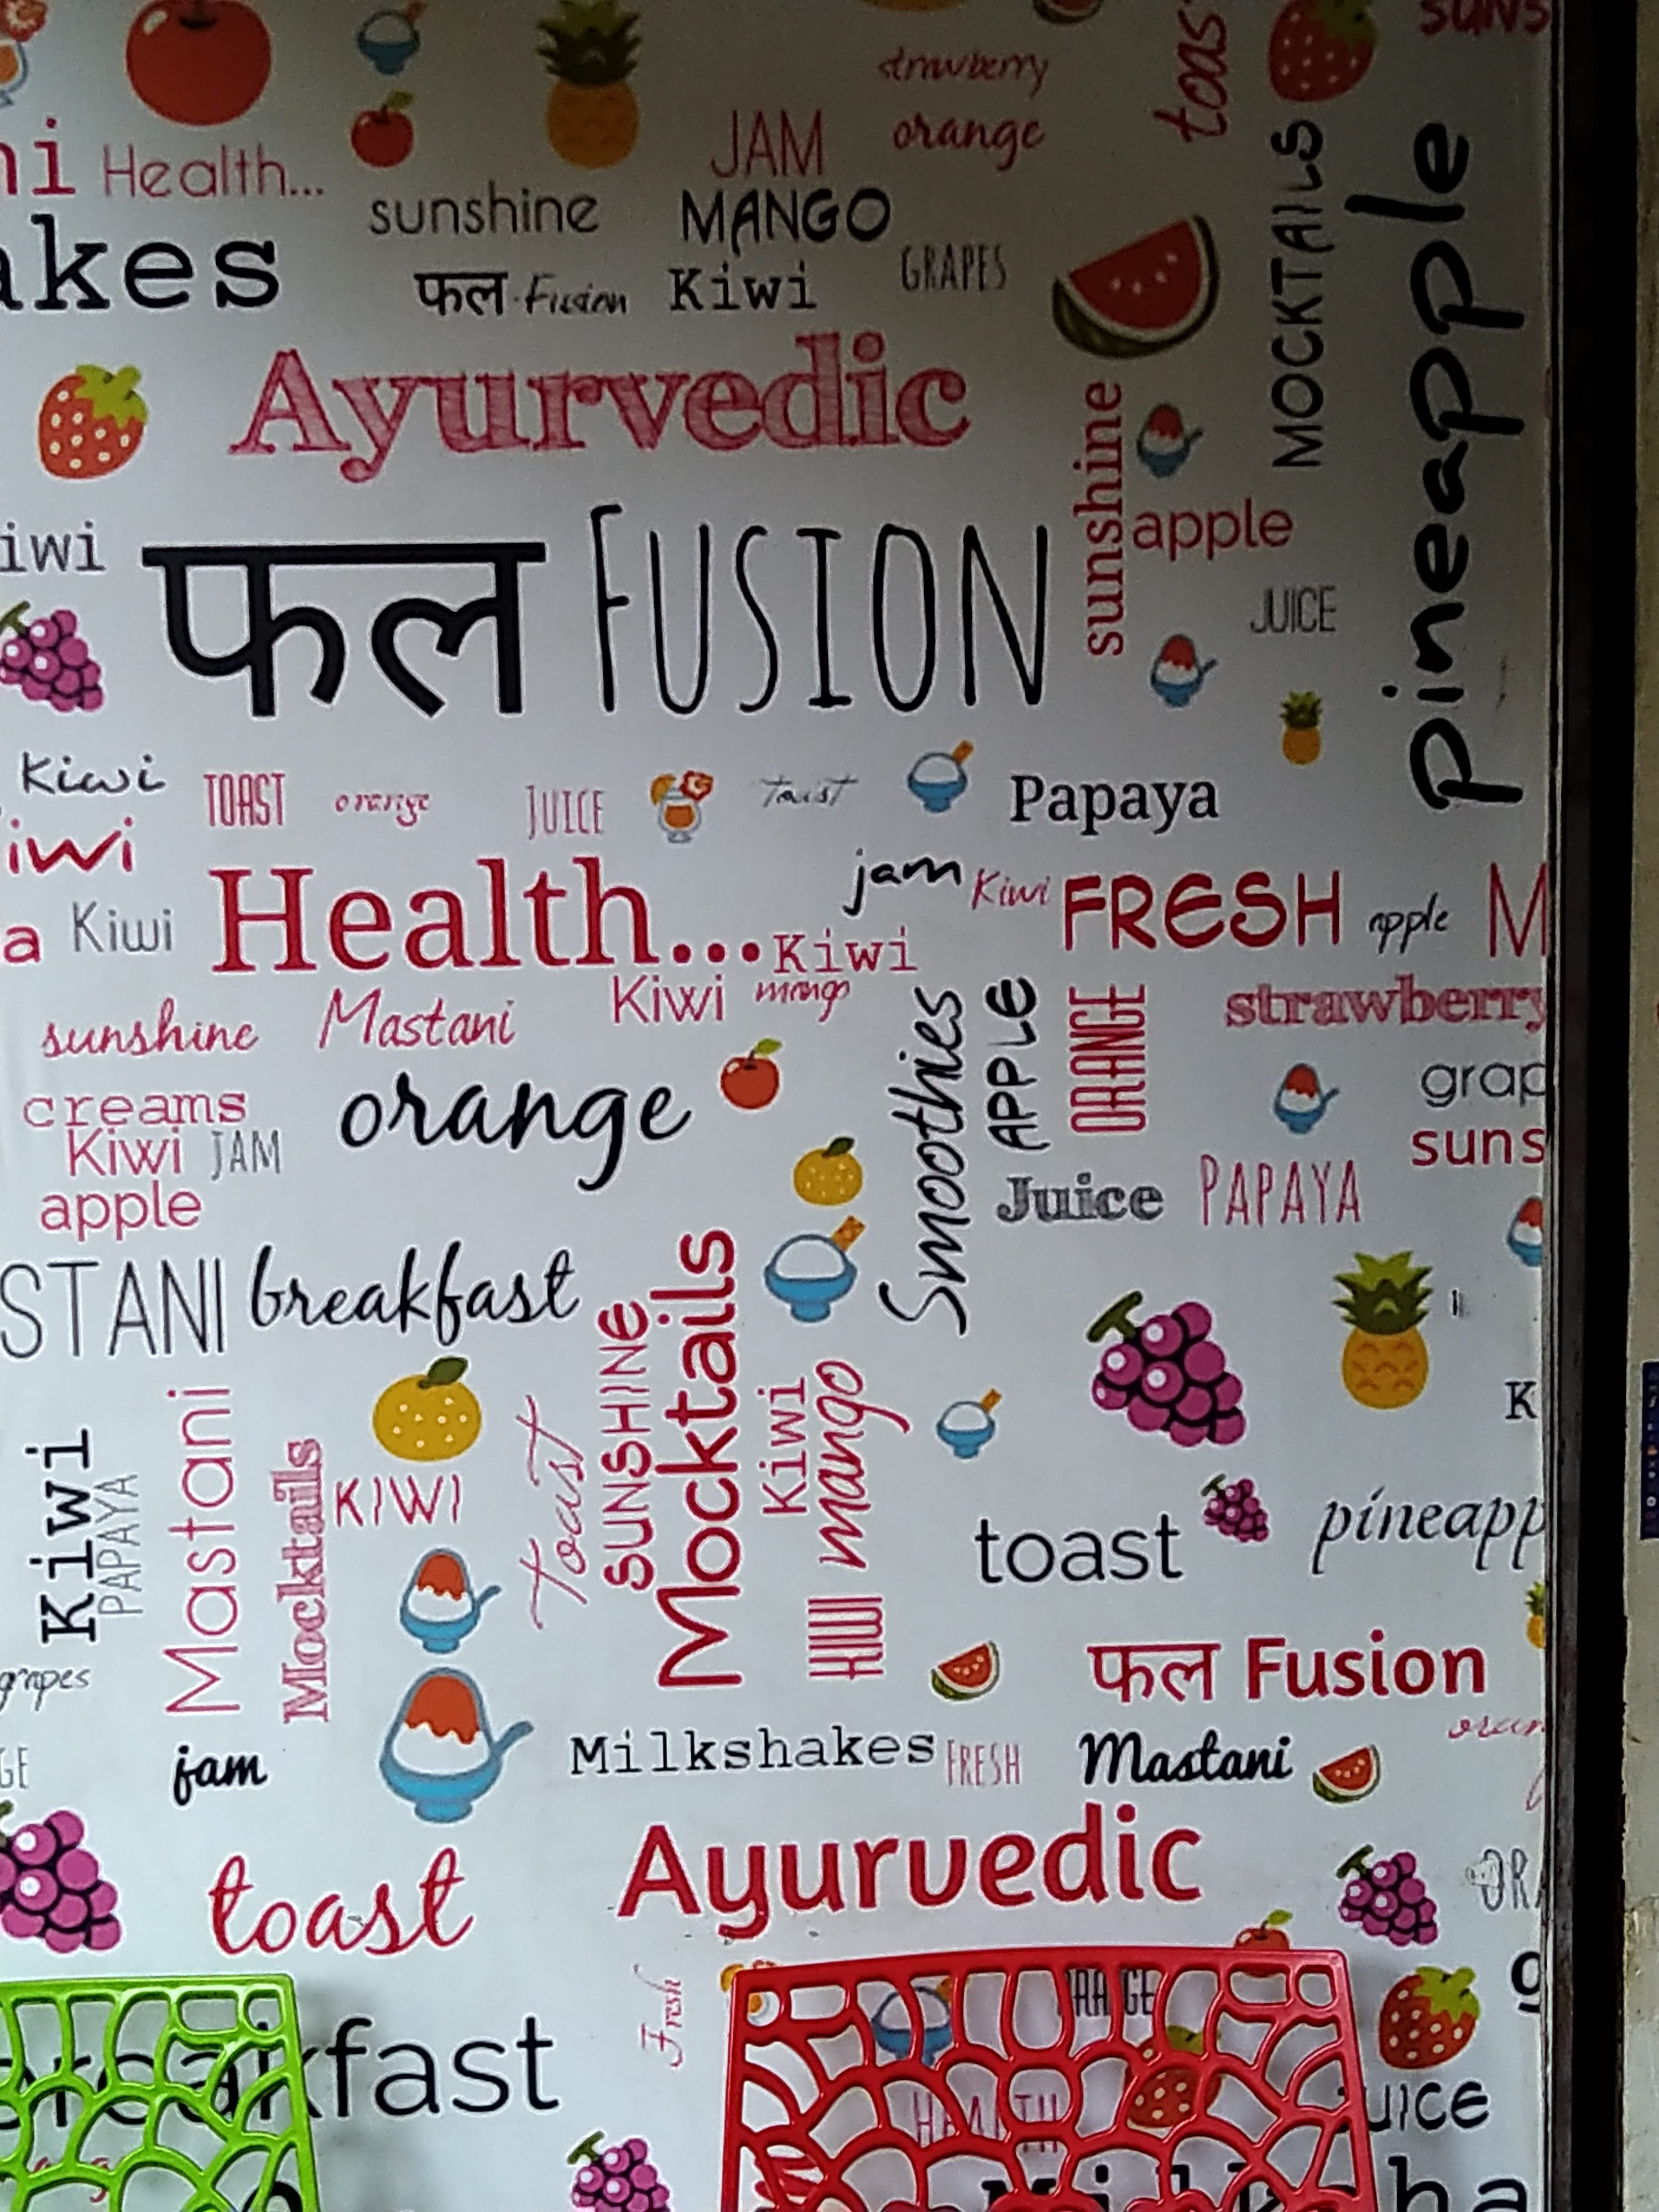 suns
strawberry
toas
JAM
orange
MOCKTAILS
pineapple
ni
Health...
sunshine
MANGO
akes
फल Fusion
Kiwi
GRAPES
Ayurvedic
sunshine
apple
iwi
फल FUSION
JUICE
Kiwi
TOAST
orange
JUICE
Toast
Papaya
iwi
jam
Kiwi
FRESH
apple
M
a
Kiwi
Health...
Kiwi
sunshine
Mastani
Kiwi
mango
Smoothies
APPLE
ORANGE
strawberry
creams
orange
grap
Kiwi
JAM
suns
apple
Juice
PAPAYA
STANI
breakfast
SUNSHINE
Mocktails
Kiwi
mango
K
Kiwi
PAPAYA
Mastani
Mocktails
KIWI
toast
KIWI
toast
pineapp
grapes
फल Fusion
oran
GE
jam
Milkshakes
FRESH
Mastani
toast
Ayurvedic
ORA
Fresh
ORANGE
g
breakfast
HEALTH
JUICE
Milksha